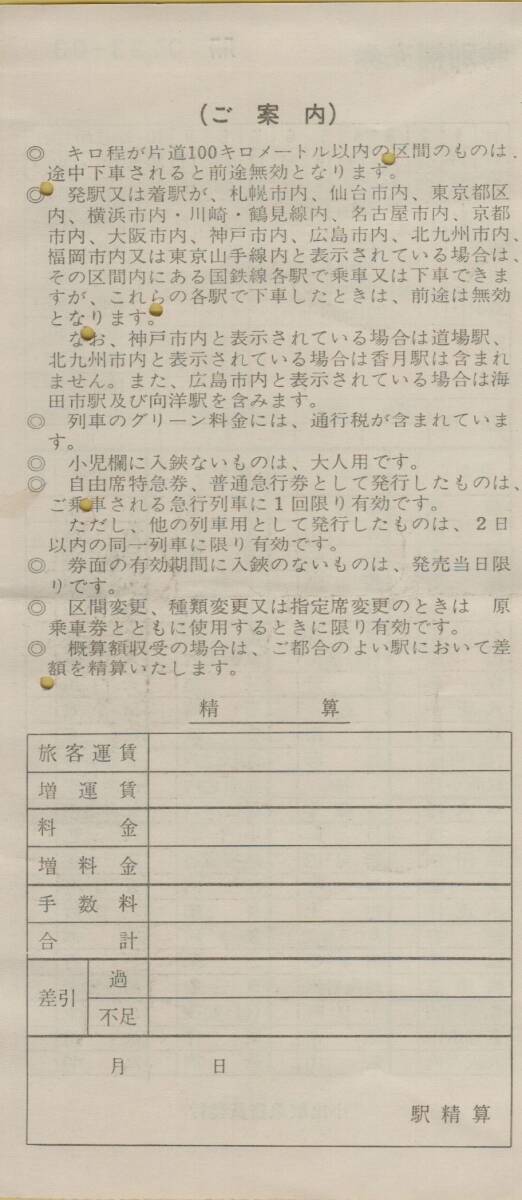 (ご案内)
◎ キロ程が片道100キロメートル以内の区間のものは、
途中下車されると前途無効となります。
◎ 発駅又は着駅が、札幌市内、仙台市内、東京都区
内、横浜市内・川崎・鶴見線内、名古屋市内、京都
市内、大阪市内、神戸市内、広島市内、北九州市内、
福岡市内又は東京山手線内と表示されている場合は、
その区間内にある国鉄線各駅で乗車又は下車できま
すが、これらの各駅で下車したときは、前途は無効
となります。
なお、神戸市内と表示されている場合は道場駅、
北九州市内と表示されている場合は香月駅は含まれ
ません。また、広島市内と表示されている場合は海
田市駅及び向洋駅を含みます。
◎ 列車のグリーン料金には、通行税が含まれていま
す。
◎ 小児欄に入鋏ないものは、大人用です。
◎ 自由席特急券、普通急行券として発行したものは、
ご乗車される急行列車に1回限り有効です。
ただし、他の列車用として発行したものは、2日
以内の同一列車に限り有効です。
◎ 券面の有効期間に入鋏のないものは、発売当日限
りです。
◎ 区間変更、種類変更又は指定席変更のときは 原
乗車券とともに使用するときに限り有効です。
◎ 概算額収受の場合は、ご都合のよい駅において差
額を精算いたします。
精算
旅客運賃
増運賃
料金
増料金
手数料
合計
差引 過
不足
月 日
駅精算